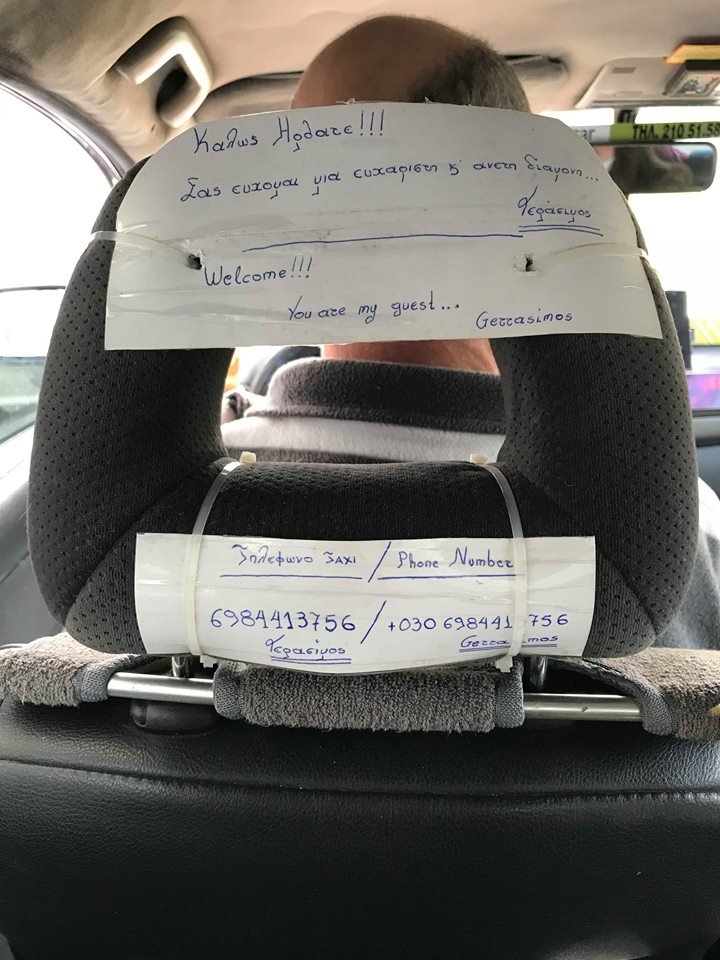 ΤΗΛ. 210 51.59
Καλως Ηρθατε!!!
Σας ευχομαι για ευχαριστη κ' ανετη διαμονη...
Γερασιμος
Welcome!!!
You are my guest...
Gerrasimos
Τηλεφωνο TAXI / Phone Number
6984413756 / +030 698441 756
Γερασιμος Gerra imos